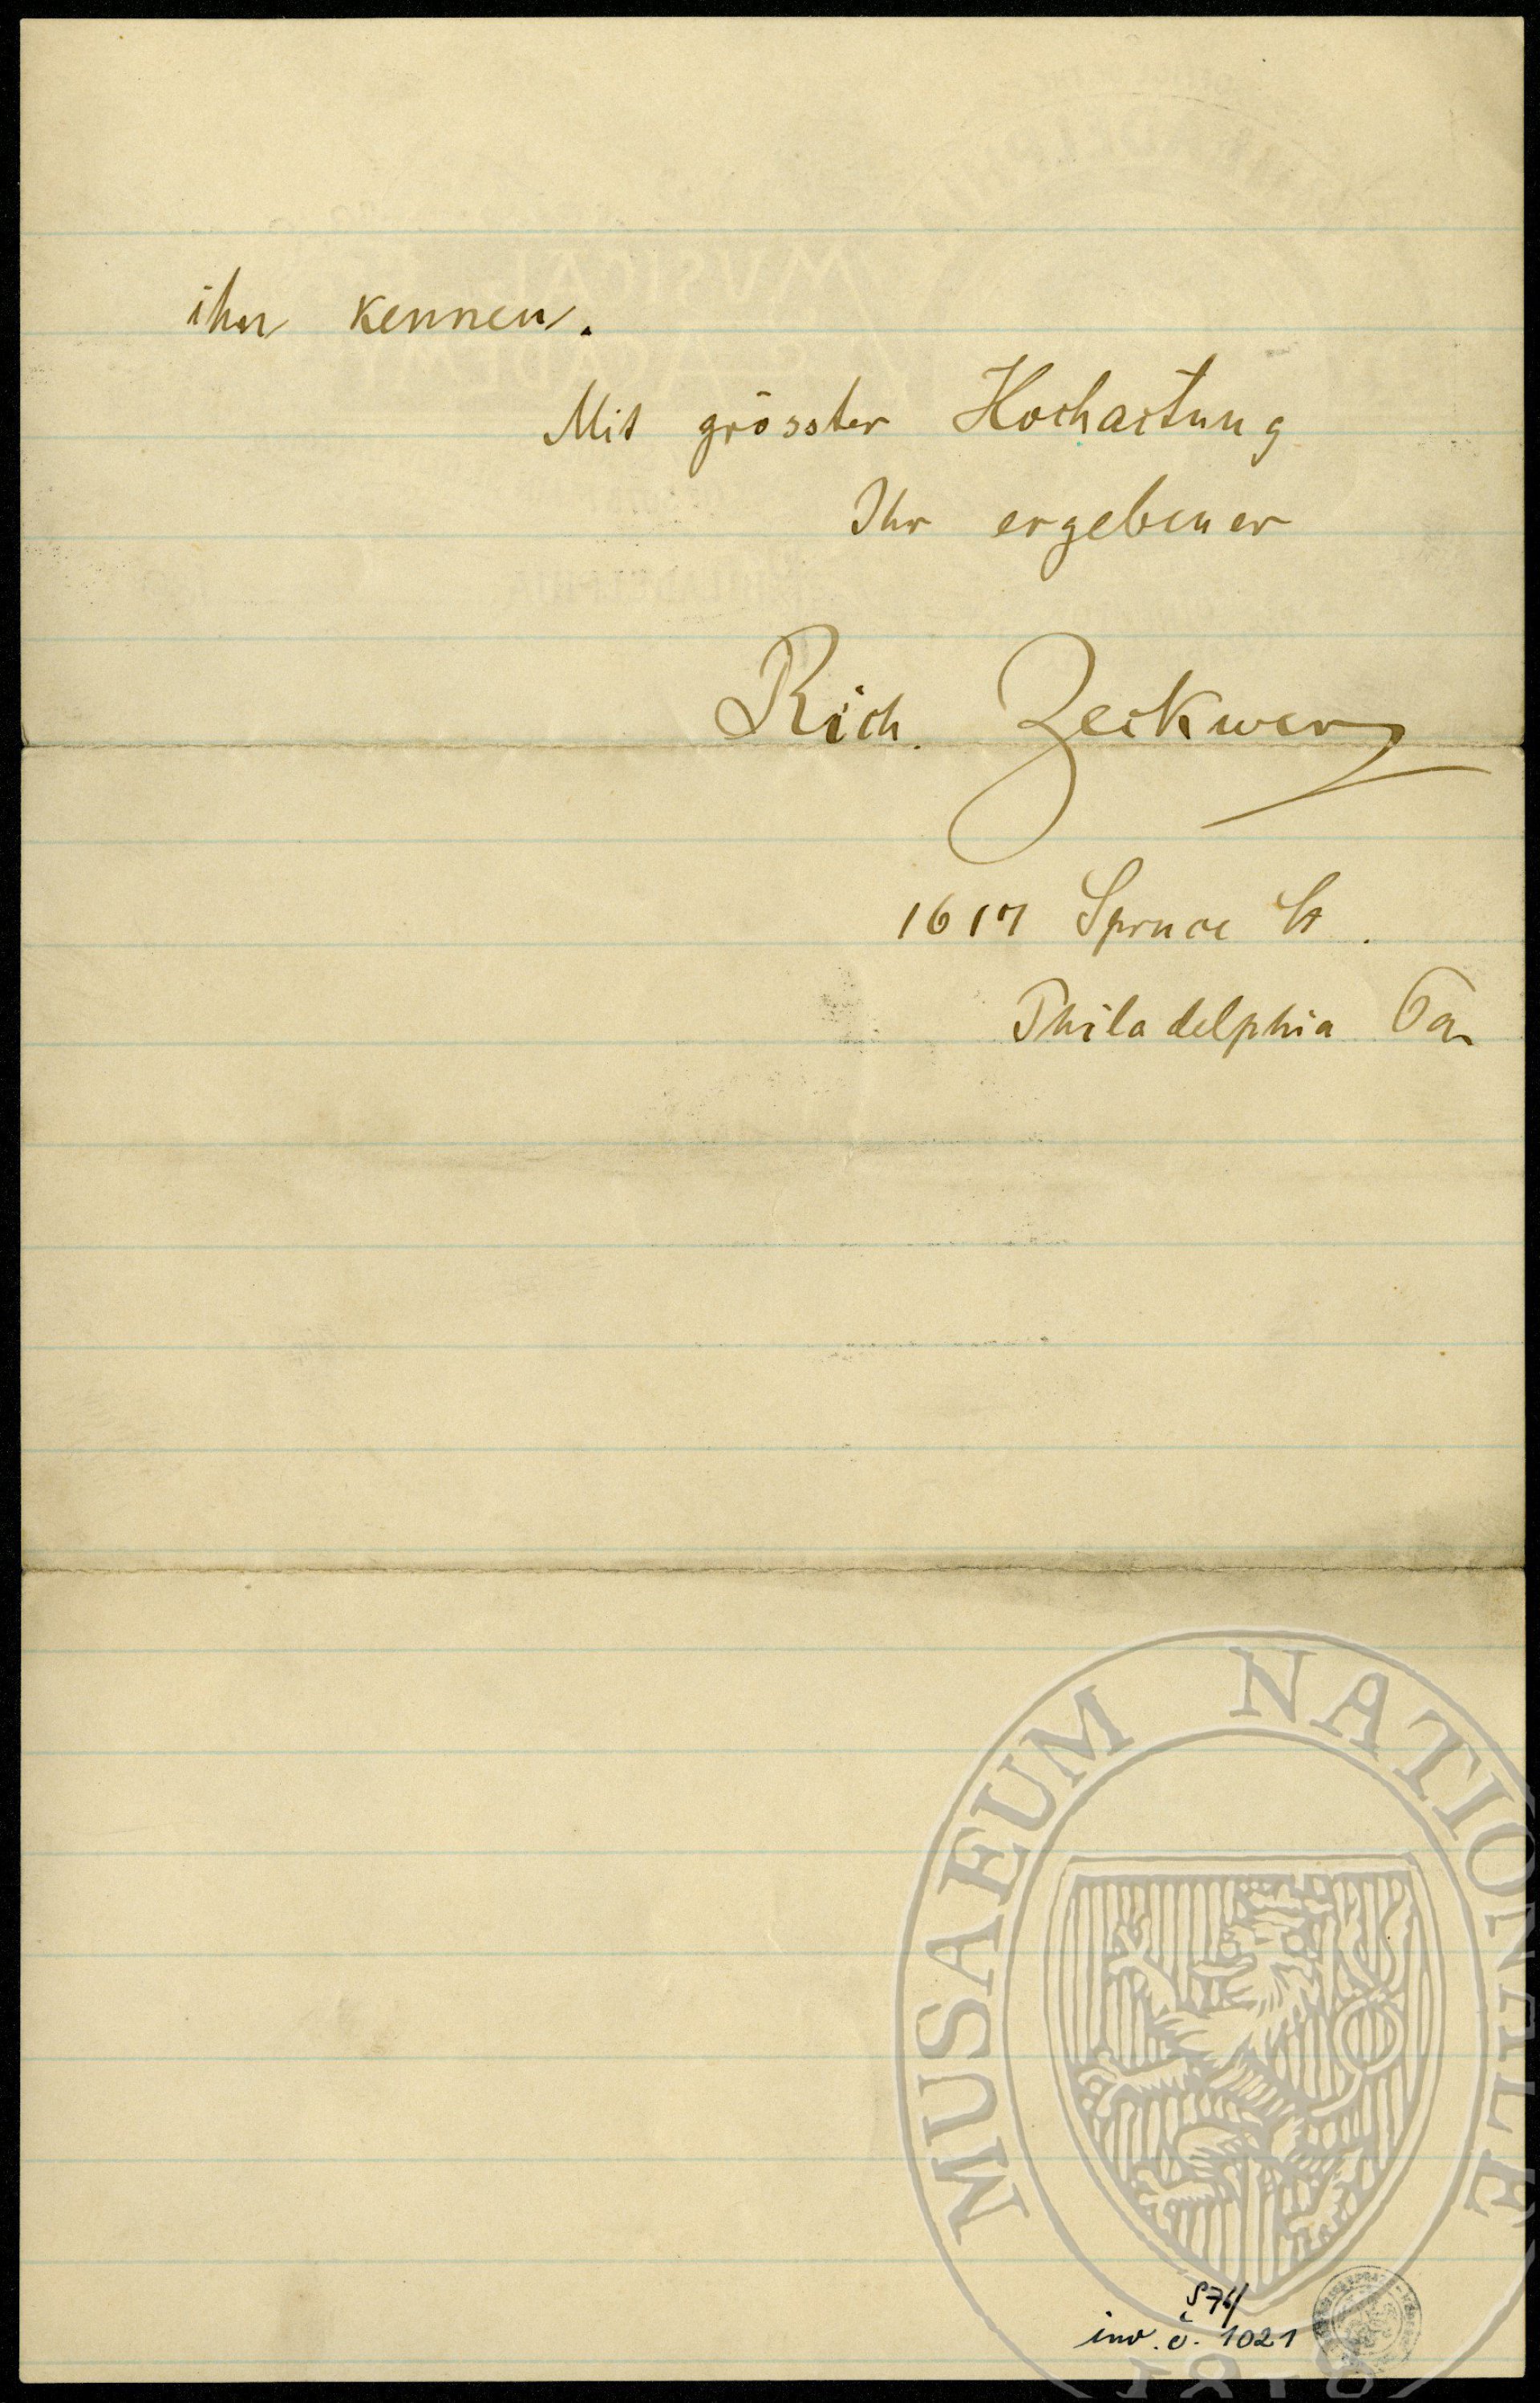 ihn kennen.
Mit grösster Hochactung
Ihr ergebener
Rich. Zeckwer
1617 Spruce St.
Philadelphia Pa.
MUSAEUM NATIONALE
1818
S74/
inv. č. 1021